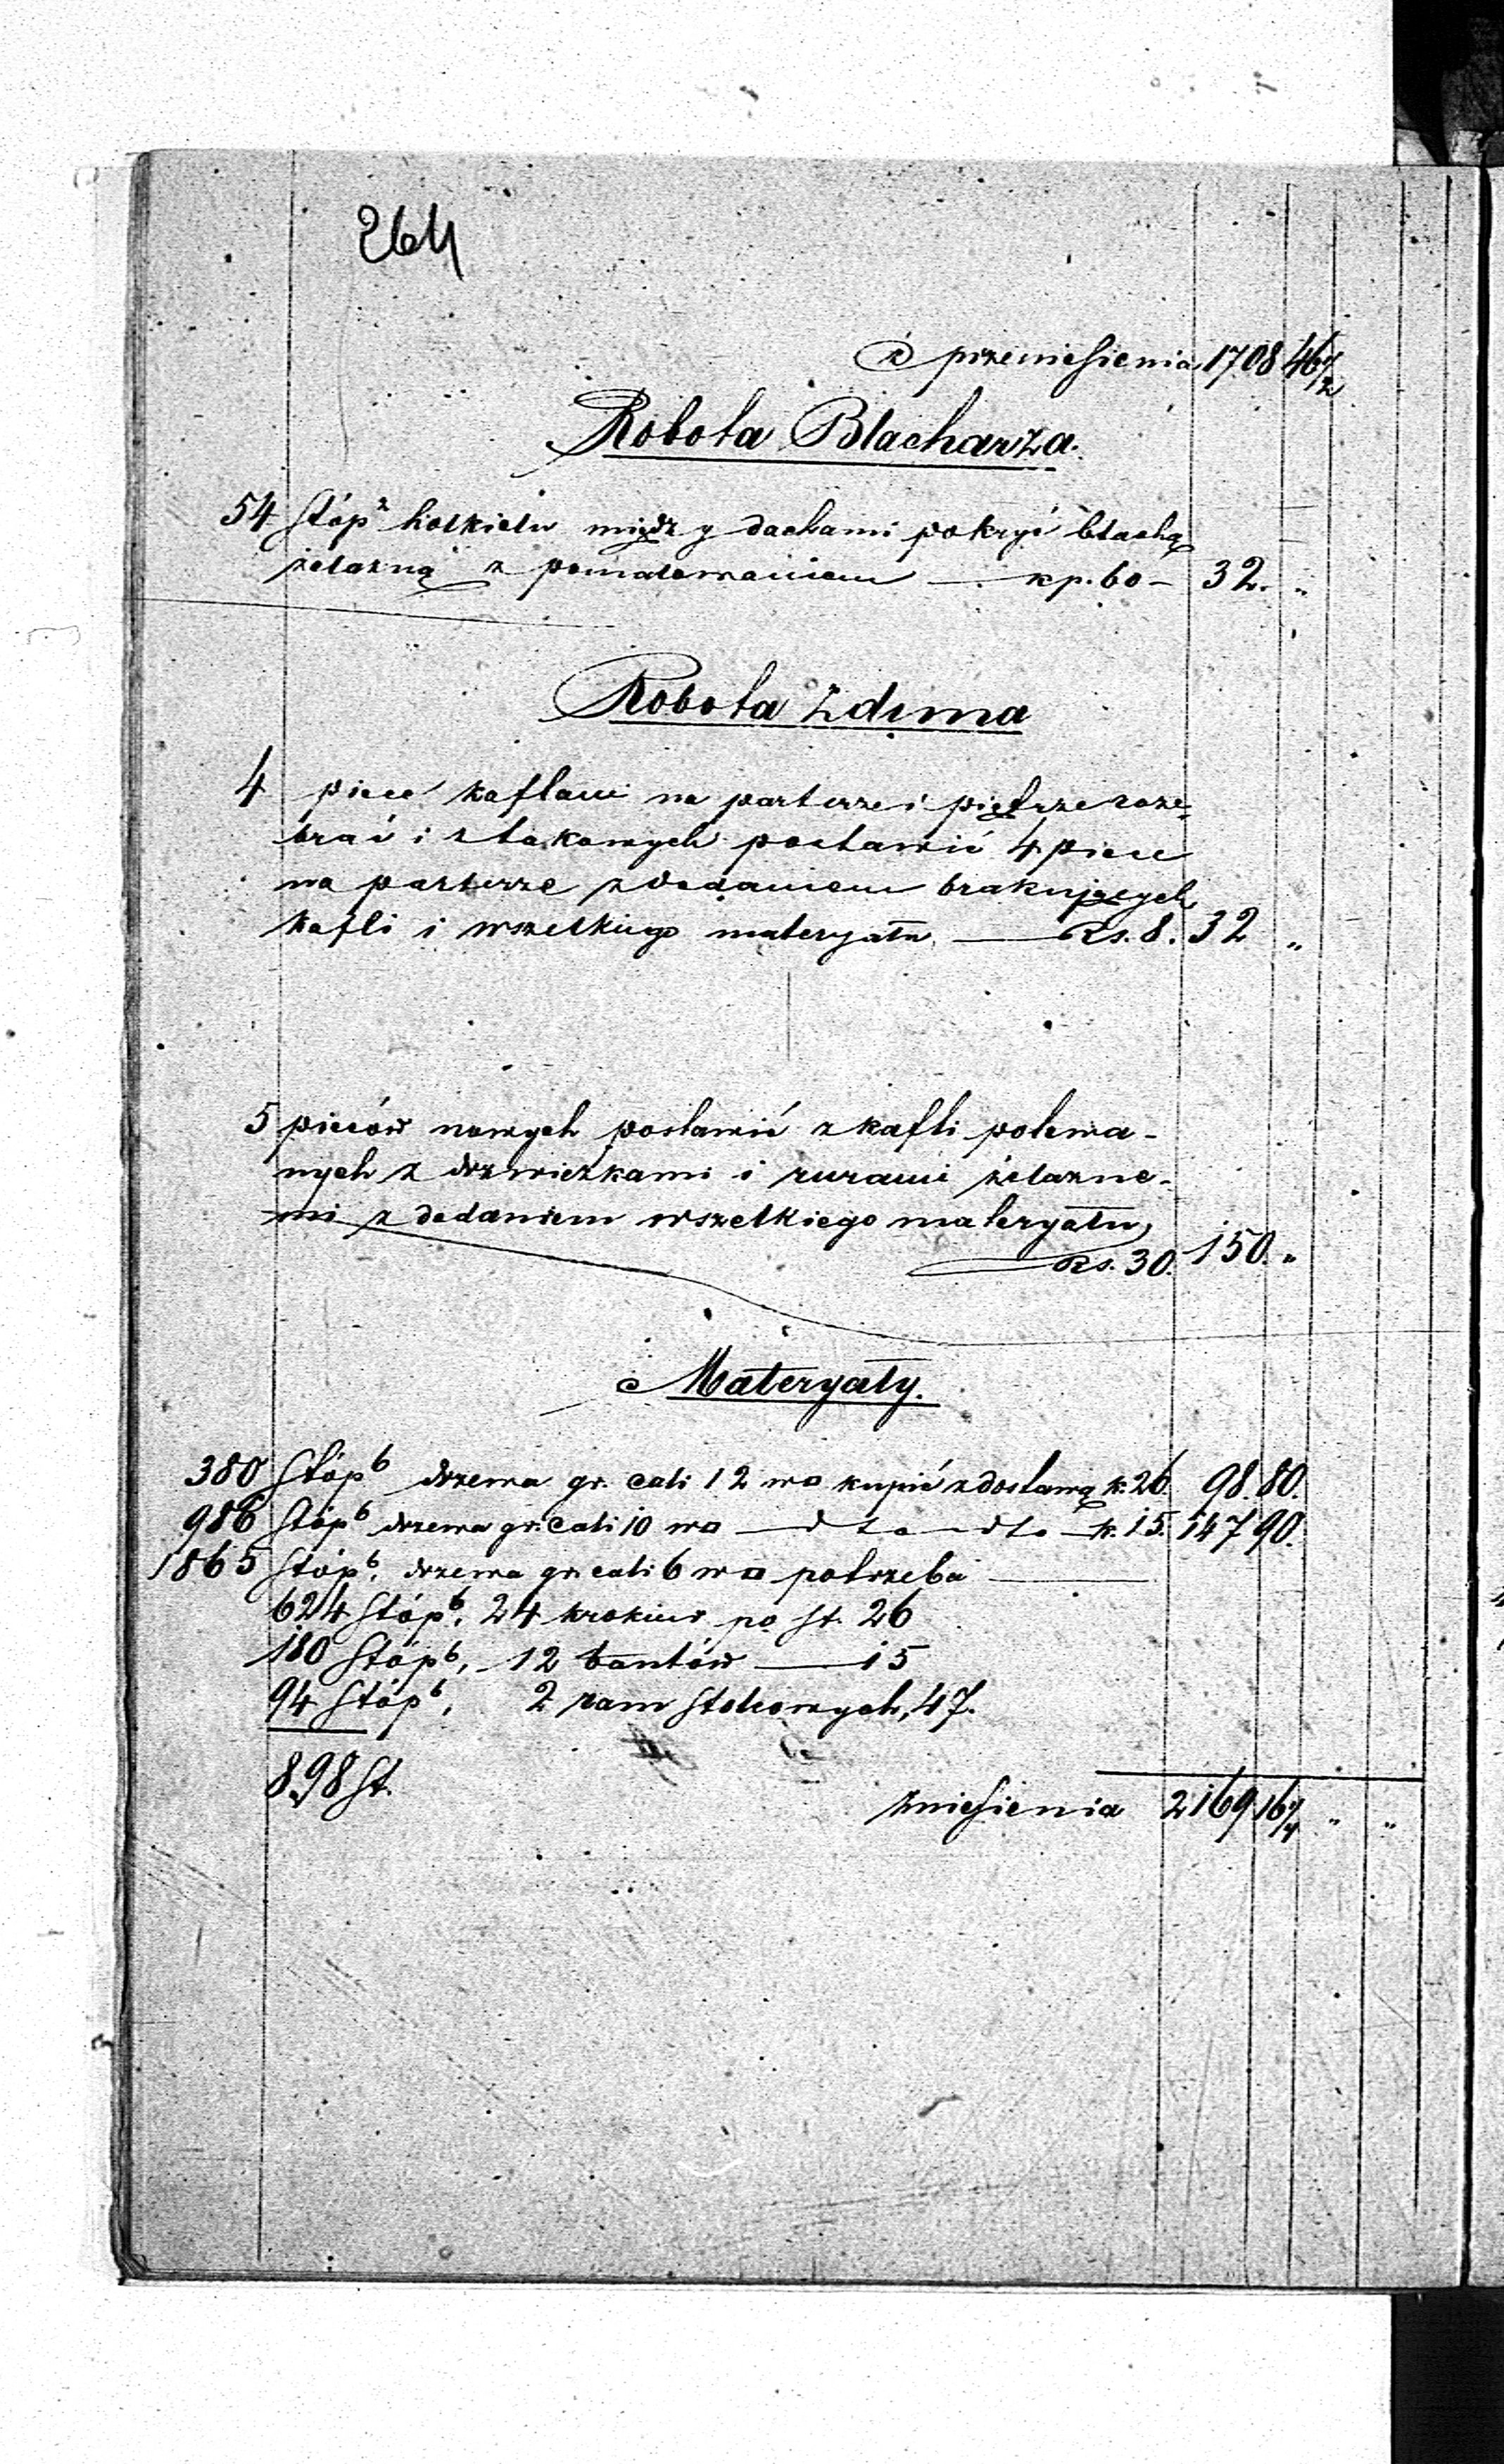 264
z przeniesienia 1708 46 1/2
Robota Blacharza.
54 Stóp² holkielu między dachami pokryć blachą
żelazną z pomalowaniem — kp. 60 — 32. „
Robota Zduna
4 piece kaflani na parterze i piętrze roze-
brać i z takowych postawić 4 piece
na parterze z dodaniem brakujących
kafli i wszelkiego materyału — Rs. 8. 32 „
5 pieców nowych postawić z kafli polewa-
nych z drzwiczkami i rurami żelazne-
mi z dodaniem wszelkiego materyału,
Rs. 30. 150. „
Materyały.
380 Stóp b drzewa gr. cali 12 w □ kupić z dostawą k. 26. 98. 80.
986 Stóp b drzewa gr. cali 10 w □ — dto — dto — k. 15. 147 90.
1865 Stóp b, drzewa gr. cali 6 w □ potrzeba —
624 Stóp b, 24 krokiew po st. 26
180 Stóp b, 12 bantów — 15
94 Stóp b, 2 ram stolcowych, 47.
898 St.
zniesienia 2169 16 1/4 „ „